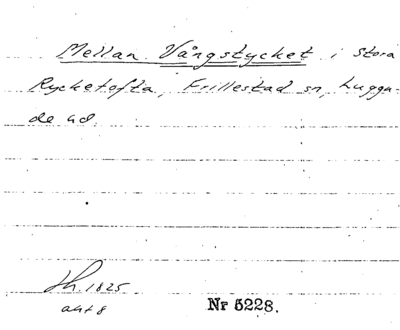 Mellan Vångstycket i Stora
Rycketofta, Frillestad sn, Luggu-
de hd.
Sk. 1825
akt 8
Nr 5228.